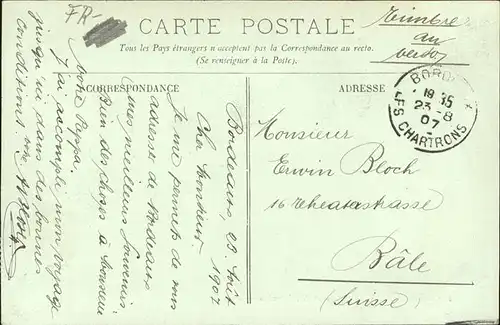 FR-
CARTE POSTALE
Tous les Pays étrangers n'acceptent pas la Correspondance au recto.
(Se renseigner à la Poste).
Timbre
au
verso
CORRESPONDANCE
ADRESSE
BORDEAUX
18 35
23 -8
07
LES CHARTRONS
Bordeaux, 23 Août
1907
Cher Monsieur
Je me permets de vous
adresser de Bordeaux
mes meilleurs Souvenirs
Bien des choses à Monsieur
votre Papa.
J'ai accompli mon voyage
jusqu'ici dans des bonnes
conditions.
Monsieur
Erwin Bloch
16 Theaterstrasse
Bâle
(Suisse)